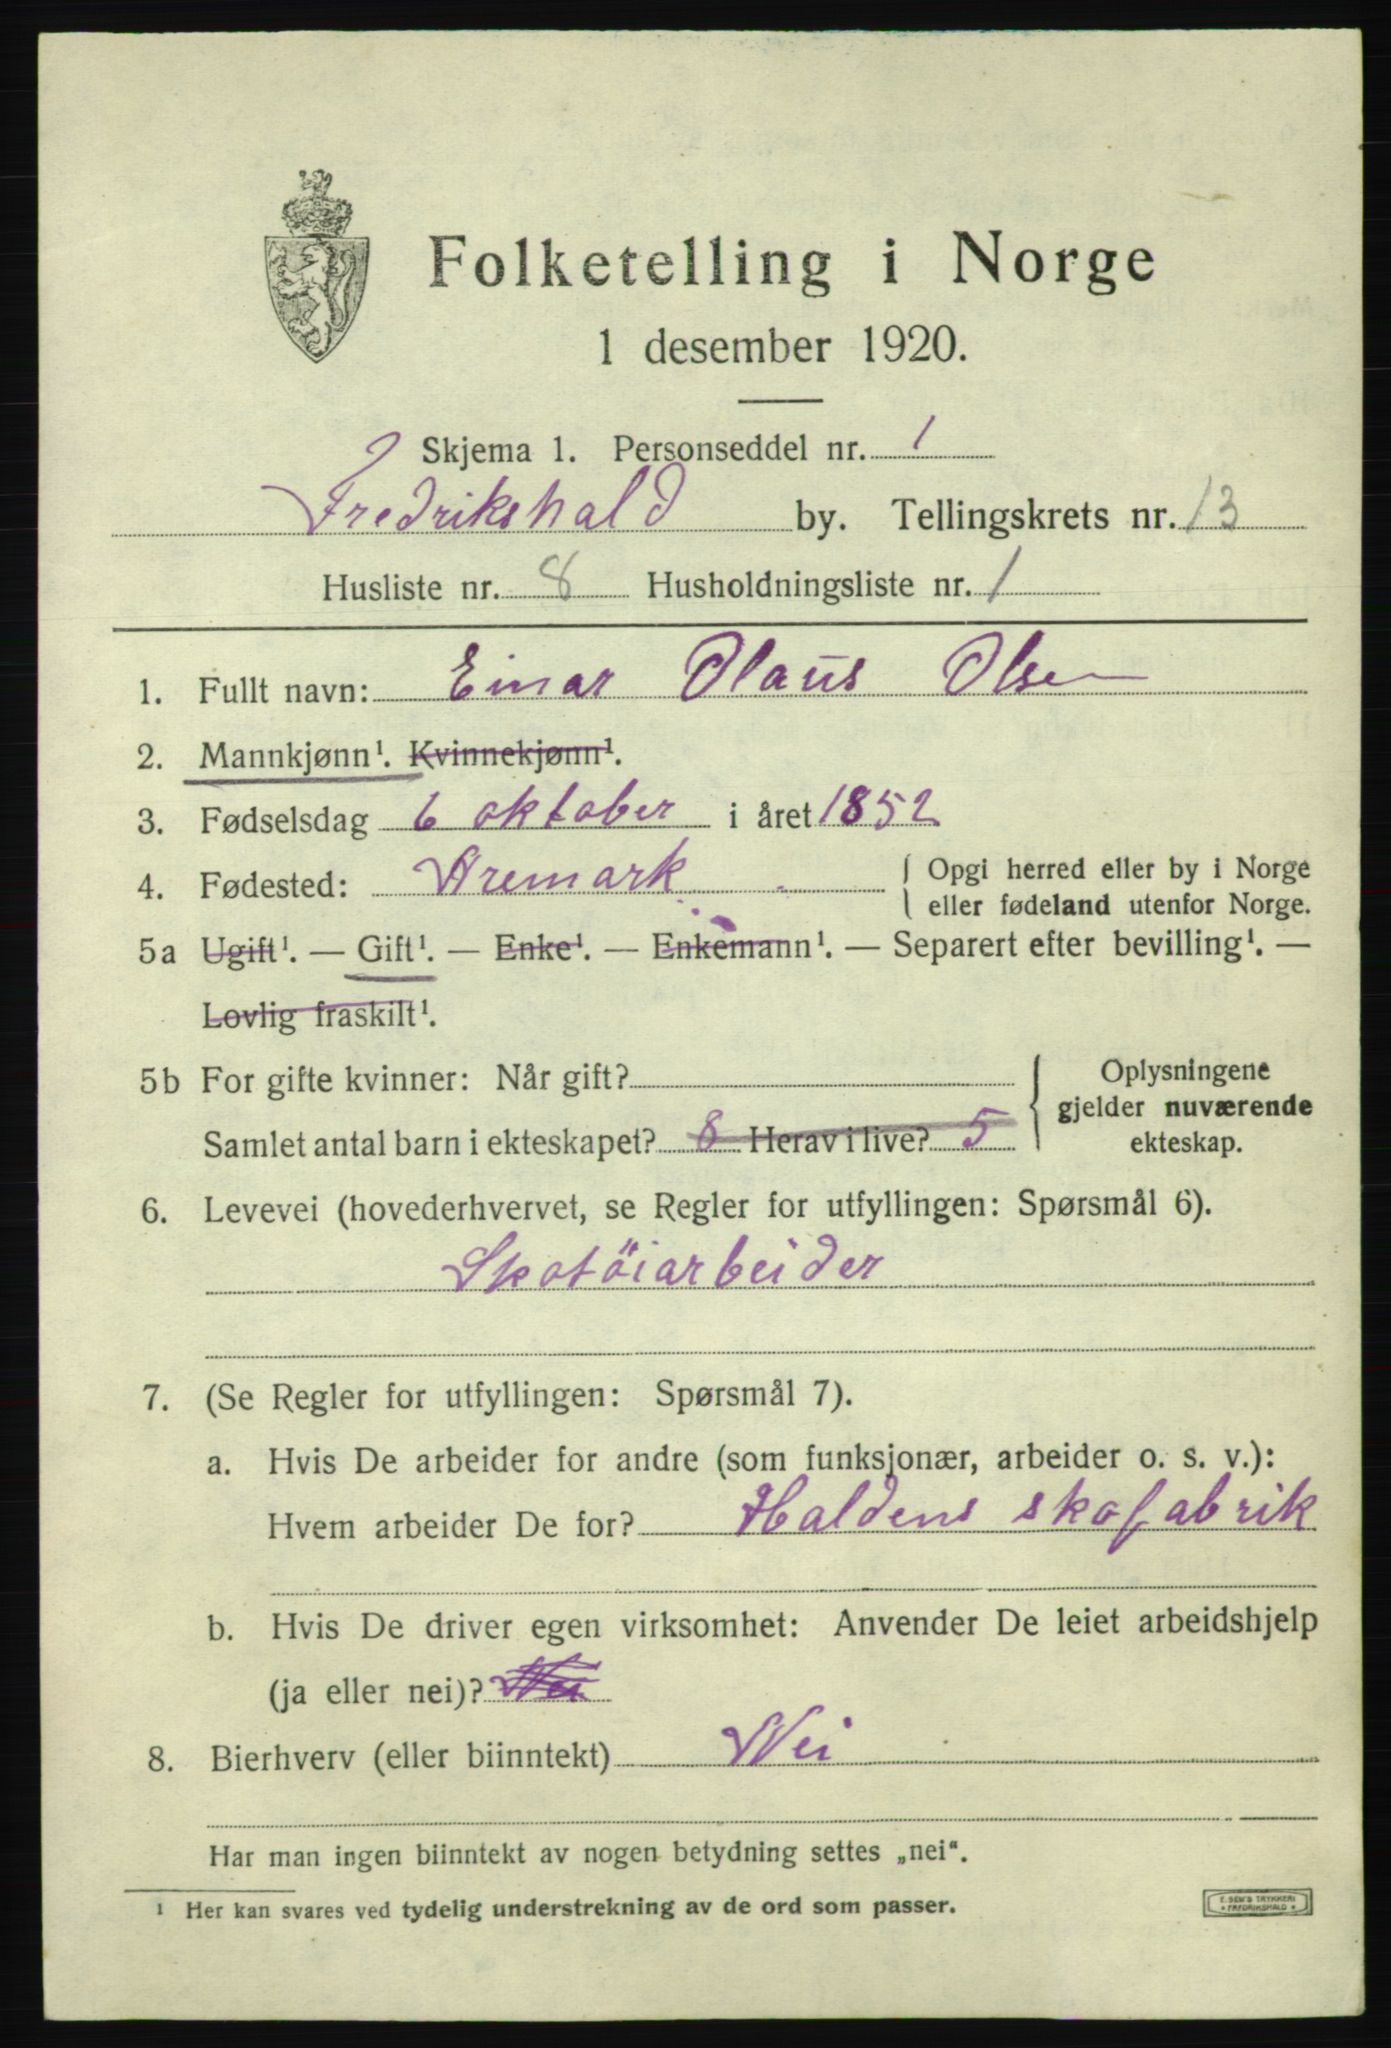 Folketelling i Norge
1 desember 1920.
Skjema 1. Personseddel nr. 1
Fredrikshald by. Tellingskrets nr. 13
Husliste nr. 8 Husholdningsliste nr. 1
1. Fullt navn: Einar Olaus Olsen
2. Mannkjønn¹. Kvinnekjønn¹.
3. Fødselsdag 6 oktober i året 1852
4. Fødested: Aremark { Opgi herred eller by i Norge
eller fødeland utenfor Norge.
5a Ugift¹. — Gift¹. — Enke¹. — Enkemann¹. — Separert efter bevilling¹. —
Lovlig fraskilt¹.
5b For gifte kvinner: Når gift?
Samlet antal barn i ekteskapet? 8 Herav i live? 5
Oplysningene
gjelder nuværende
ekteskap.
6. Levevei (hovederhvervet, se Regler for utfyllingen: Spørsmål 6).
Skotöiarbeider
7. (Se Regler for utfyllingen: Spørsmål 7).
a. Hvis De arbeider for andre (som funksjonær, arbeider o. s. v.):
Hvem arbeider De for? Haldens skofabrik
b. Hvis De driver egen virksomhet: Anvender De leiet arbeidshjelp
(ja eller nei)? Nei
8. Bierhverv (eller biinntekt) Nei
Har man ingen biinntekt av nogen betydning settes „nei“.
¹ Her kan svares ved tydelig understrekning av de ord som passer.
E. SEM'S TRYKKERI
* FREDRIKSHALD *